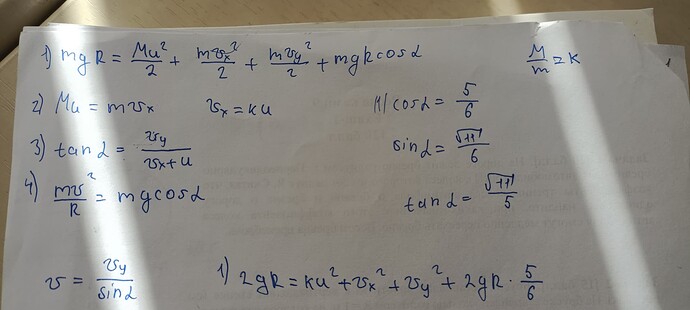 1) mgR = Mu²/2 + mvₓ²/2 + mv_y²/2 + mgRcosα
M/m = k
2) Mu = mvₓ vₓ = ku
11) cosα = 5/6
3) tanα = v_y/(vₓ+u)
sinα = √11/6
4) mv²/R = mgcosα
tanα = √11/5
v = v_y/sinα
1) 2gR = ku² + vₓ² + v_y² + 2gR · 5/6